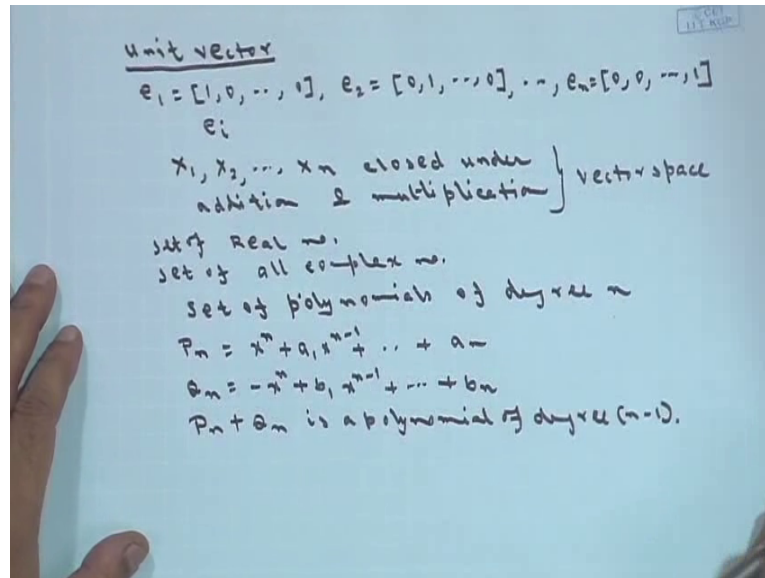 © CET
I.I.T. KGP
unit vector
e₁ = [1, 0, .., 0], e₂ = [0, 1, .., 0], .., eₙ = [0, 0, .., 1]
eᵢ
x₁, x₂, ..., xₙ closed under } vector space
addition & multiplication
set of Real no.
set of all complex no.
set of polynomials of degree n
Pₙ = xⁿ + a₁xⁿ⁻¹ + .. + aₙ
Qₙ = -xⁿ + b₁xⁿ⁻¹ + ... + bₙ
Pₙ + Qₙ is a polynomial of degree (n-1).